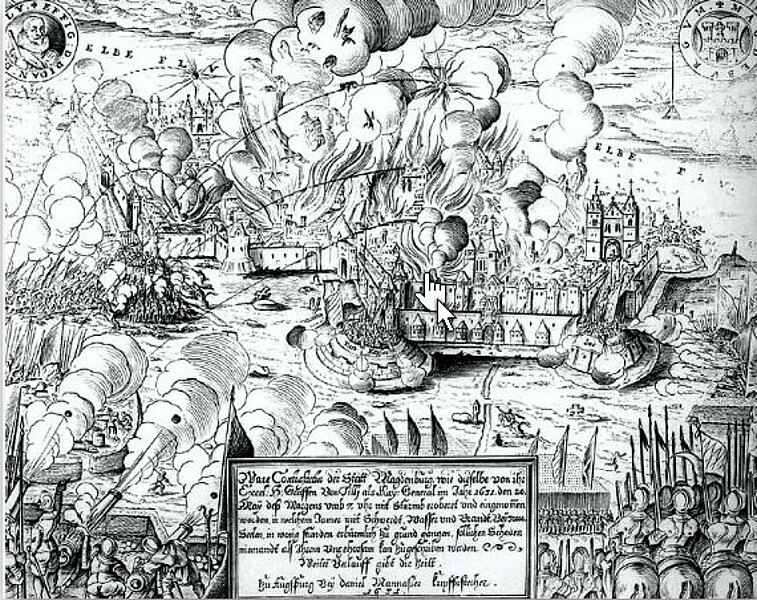 LY ✶ EFFIG. D: IOAN. D.
ELBE FLV
MAGDEBVRGVM ✶
ELBE F.
Ware Contrafactur der Statt Magdenburg, wie dieselbe von ihr
Excel: H. Graffen Von Tilly als Kay: General im Jahr 1631. den 20.
May deß Morgens vmb 7. vhr mit Sturmb erobert vnd eingenommen
worden, in welchem Jamer mit Schwerdt, Wasser vnd Brandt
Seelen, in wenig stunden erbärmlich zu grund gangen, solchen Schaden
niemandt als Ihrem Vngehorsam kan zugeschriben werden.
Weitt Verlauff gibt die Zeitt.
Zu Augspurg Bey Daniel Mannasser kupfferstecher.
1631.